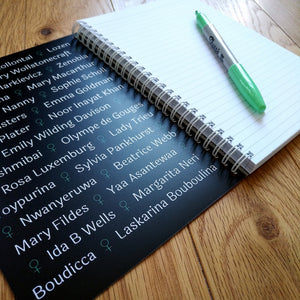 ollontai ♀ Lozen
ry Wollstonecraft
arkievicz ♀ Zenobia
♀ Mary Macarthur
Nanny ♀ Sophie Scholl
asters ♀ Emma Goldman
Plater ♀ Noor Inayat Khan
Emily Wilding Davison
shmibai ♀ Olympe de Gouges
Rosa Luxemburg ♀ Lady Trieu
oypurina ♀ Sylvia Pankhurst
♀ Nwanyeruwa ♀ Beatrice Webb
Mary Fildes ♀ Yaa Asantewaa
♀ Ida B Wells ♀ Margarita Neri
Boudicca ♀ Laskarina Bouboulina